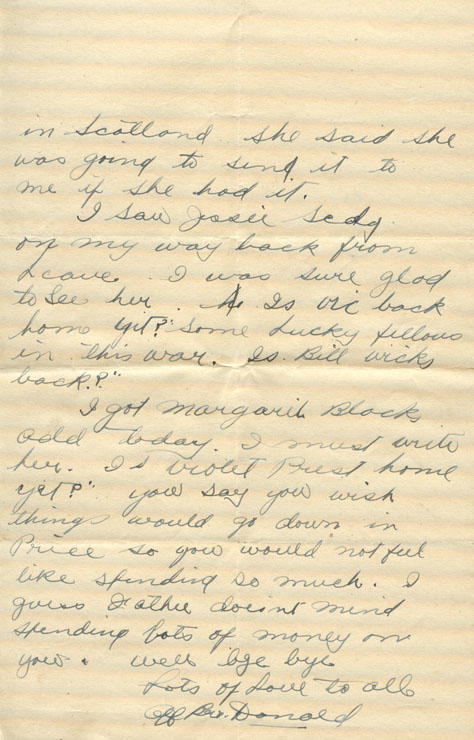 in Scotland she said she
was going to send it to
me if she had it.
I saw Jessie Sedg
on my way back from
Leave. I was sure glad
to See her. Is Vic back
home yit?" Some Lucky fellows
in this war. Is Bill wicks
back?"
I got Margarit Blacks
add today. I must write
her. Is Violet Priest home
yit?" you say you wish
things would go down in
Price so you would not ful
like spending so much. I
guess Father doesnt mind
spending lots of money on
you. well bye bye
Lots of Love to all
Donald